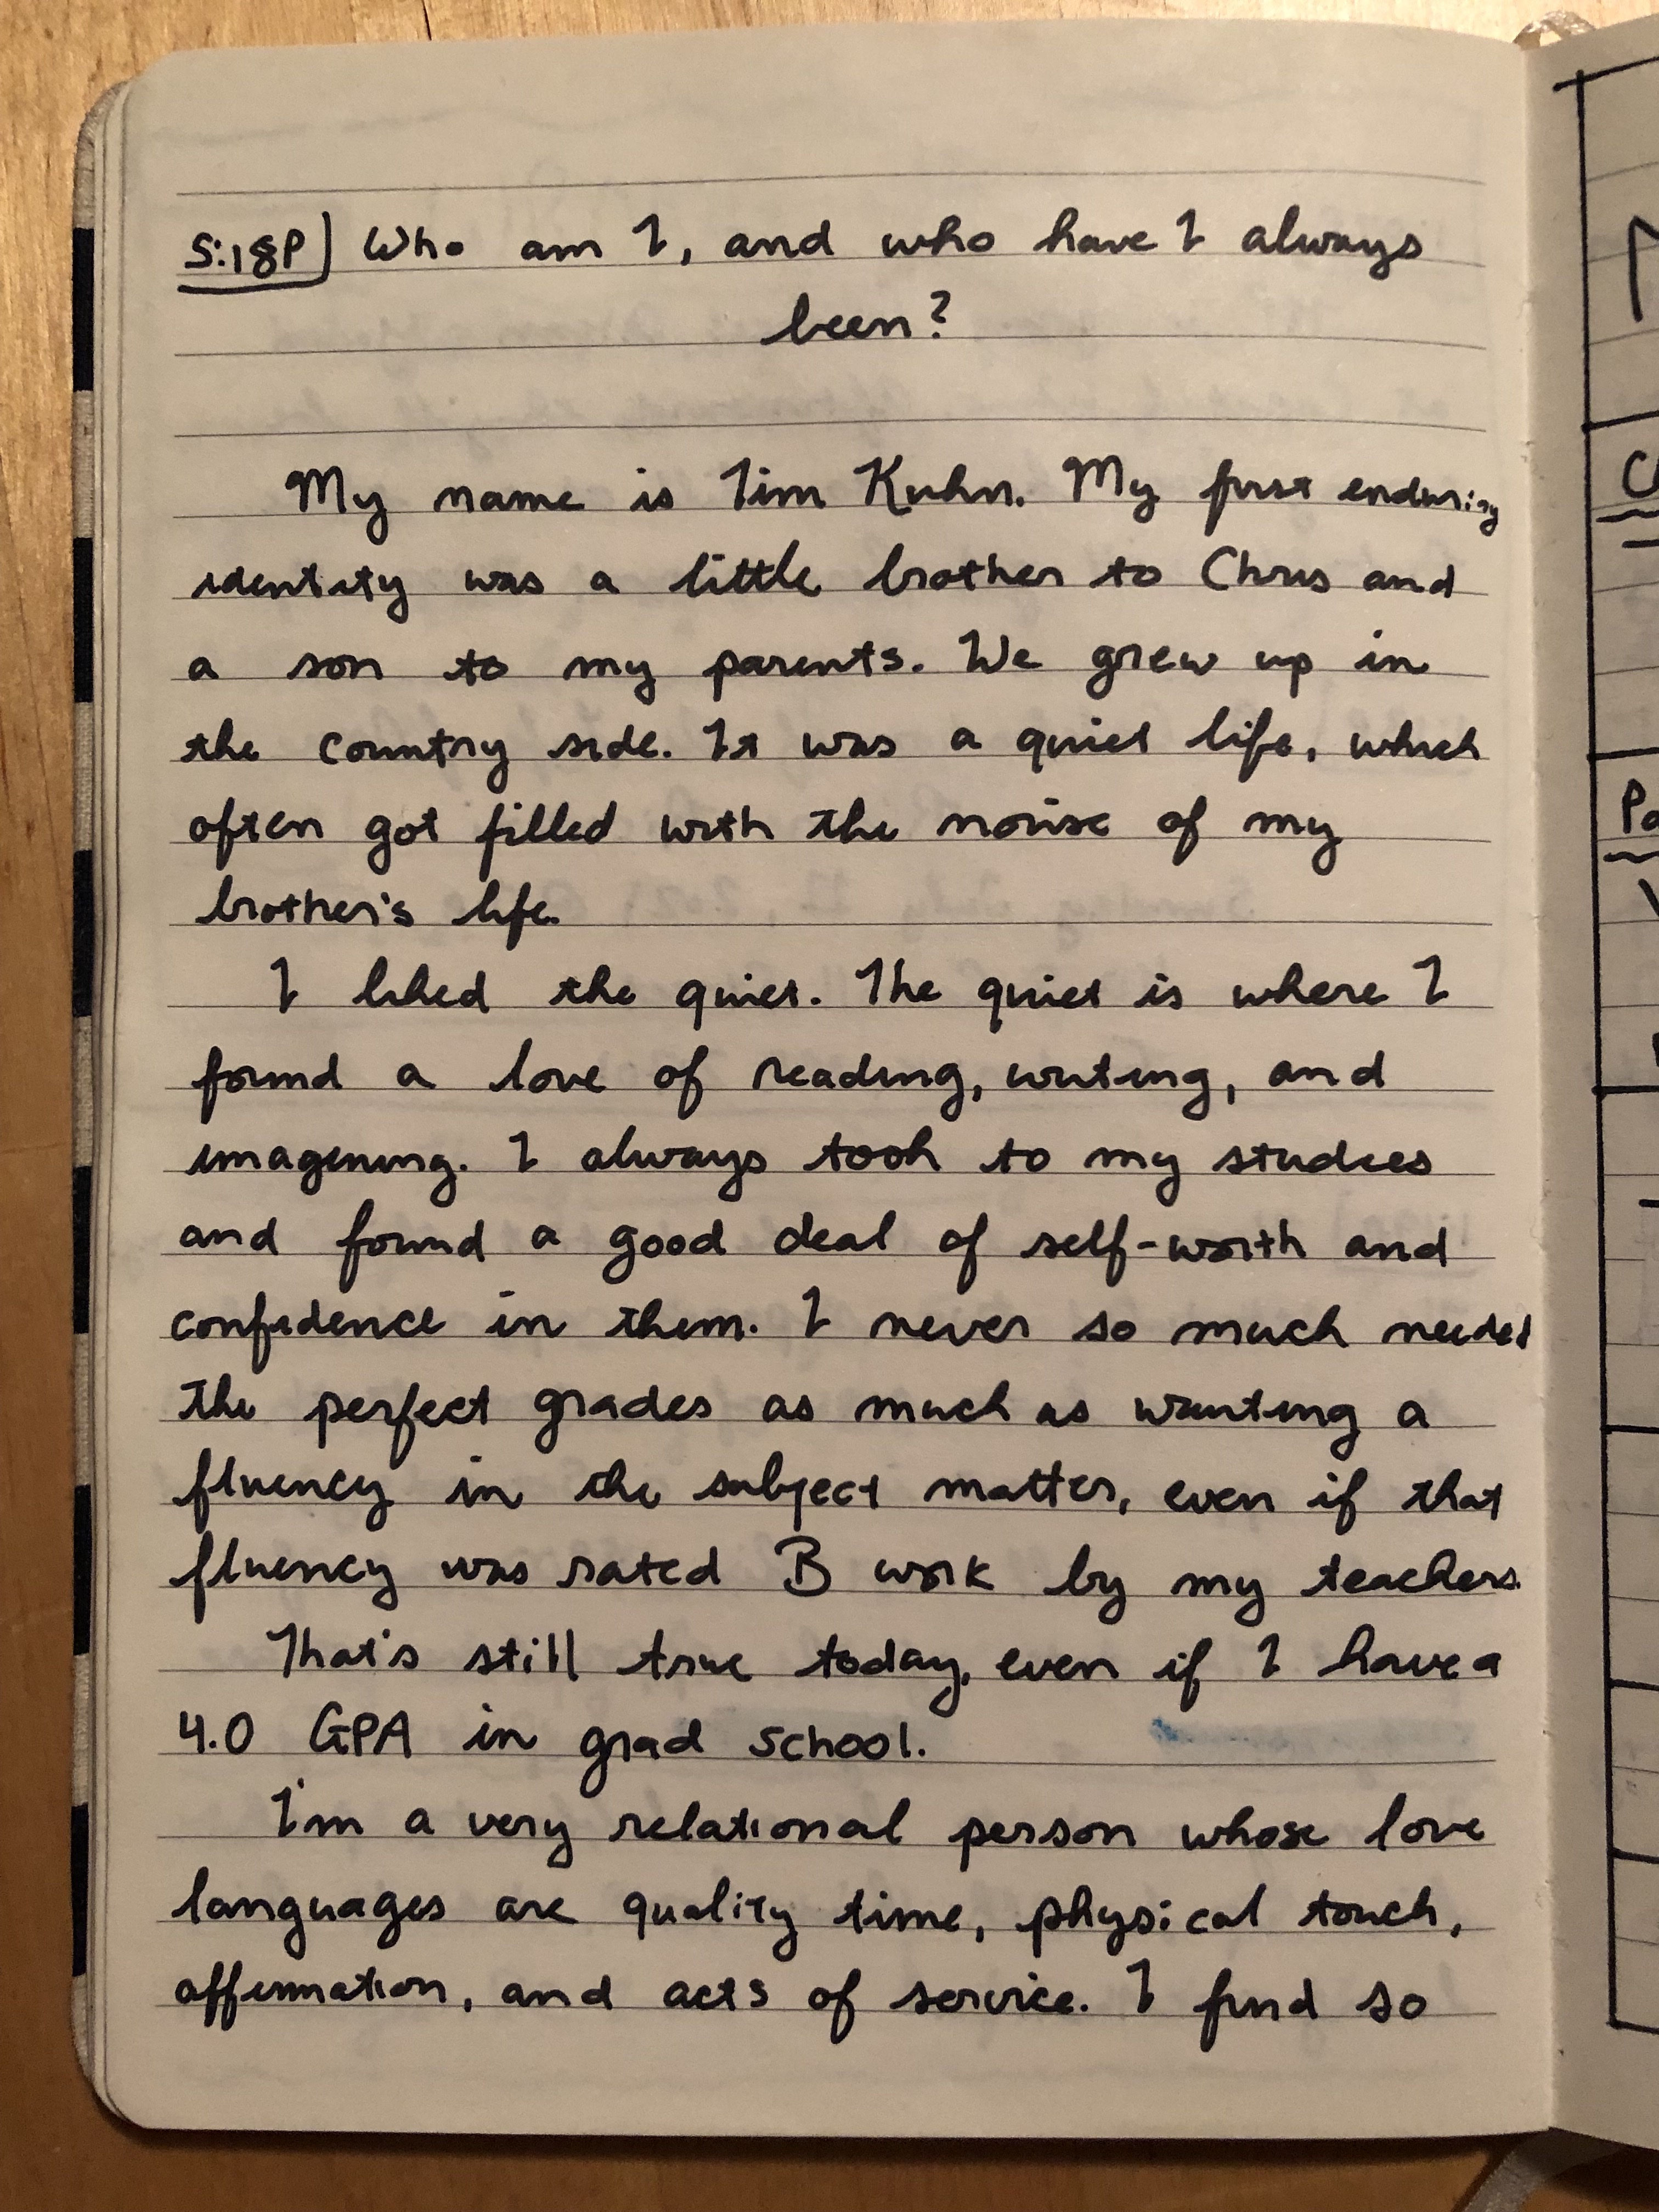 5:18P] Who am I, and who have I always
been?
My name is Tim Kuhn. My first enduring
identity was a little brother to Chris and
a son to my parents. We grew up in
the country side. It was a quiet life, which
often got filled with the noise of my
brother's life.
I liked the quiet. The quiet is where I
found a love of reading, writing, and
imagening. I always took to my studies
and found a good deal of self-worth and
confidence in them. I never so much needed
the perfect grades as much as wanting a
fluency in the subject matter, even if that
fluency was rated B work by my teachers.
That's still true today, even if I have a
4.0 GPA in grad school.
I'm a very relational person whose love
languages are quality time, physical touch,
affirmation, and acts of service. I find so